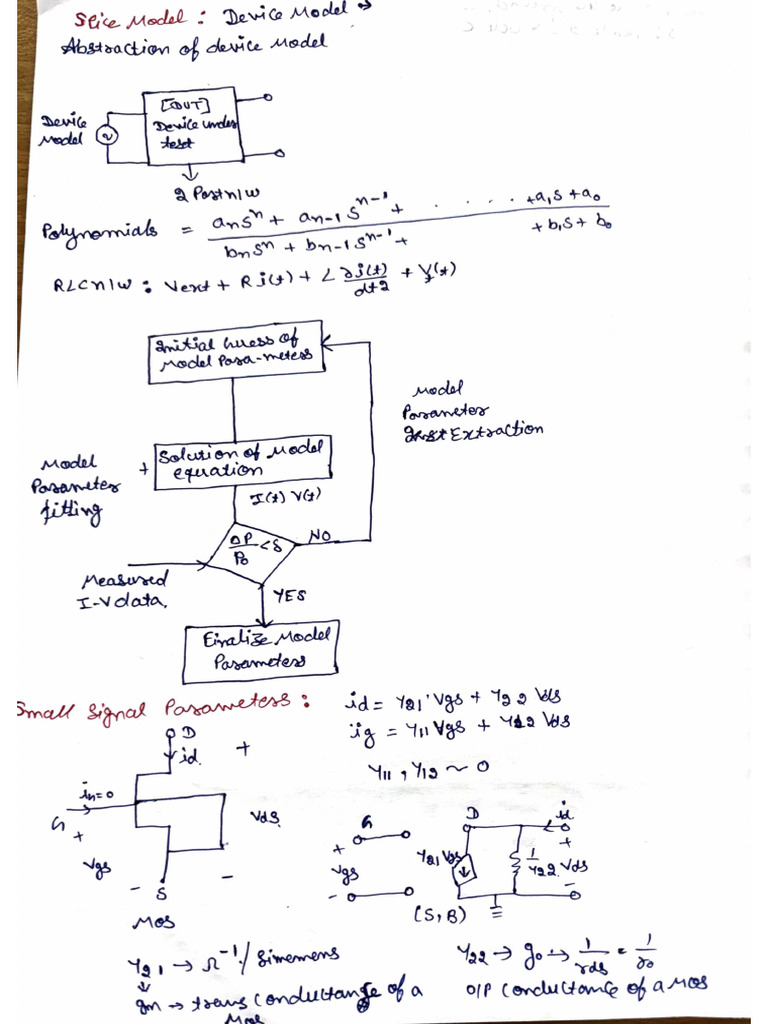 Spice Model: Device Model →
Abstraction of device Model
Device Model
[DUT]
Device under test
2 Port n/w
Polynomials = (aₙsⁿ + aₙ₋₁sⁿ⁻¹ + . . . . . +a₁s + a₀) / (bₙsⁿ + bₙ₋₁sⁿ⁻¹ + + b₁s + b₀)
RLC n/w : Vext + R i(t) + L ∂i(t)/dt2 + V(t)
Initial Guess of
Model Para-meters
Model
Parameter
Extraction
Solution of Model
equation
Model
Parameter
fitting
+
I(t) V(t)
OP/P₀ < δ
NO
Measured
I-V data.
YES
Finalize Model
Parameters
Small Signal Parameters :
id = Y21 Vgs + Y22 Vds
ig = Y11 Vgs + Y12 Vds
Y11 , Y12 ~ 0
D
id.
+
in=0
G
+
Vgs
-
S
Vds.
-
MOS
G
+
Vgs
-
D
id
Y21 Vgs
1/Y22
+
Vds
-
(S, B)
Y21 → Ω⁻¹ / Simemens
↓
gm → trans conductance of a
Mos
Y22 → g₀ → 1/rds = 1/r₀
O/P conductance of a MOS